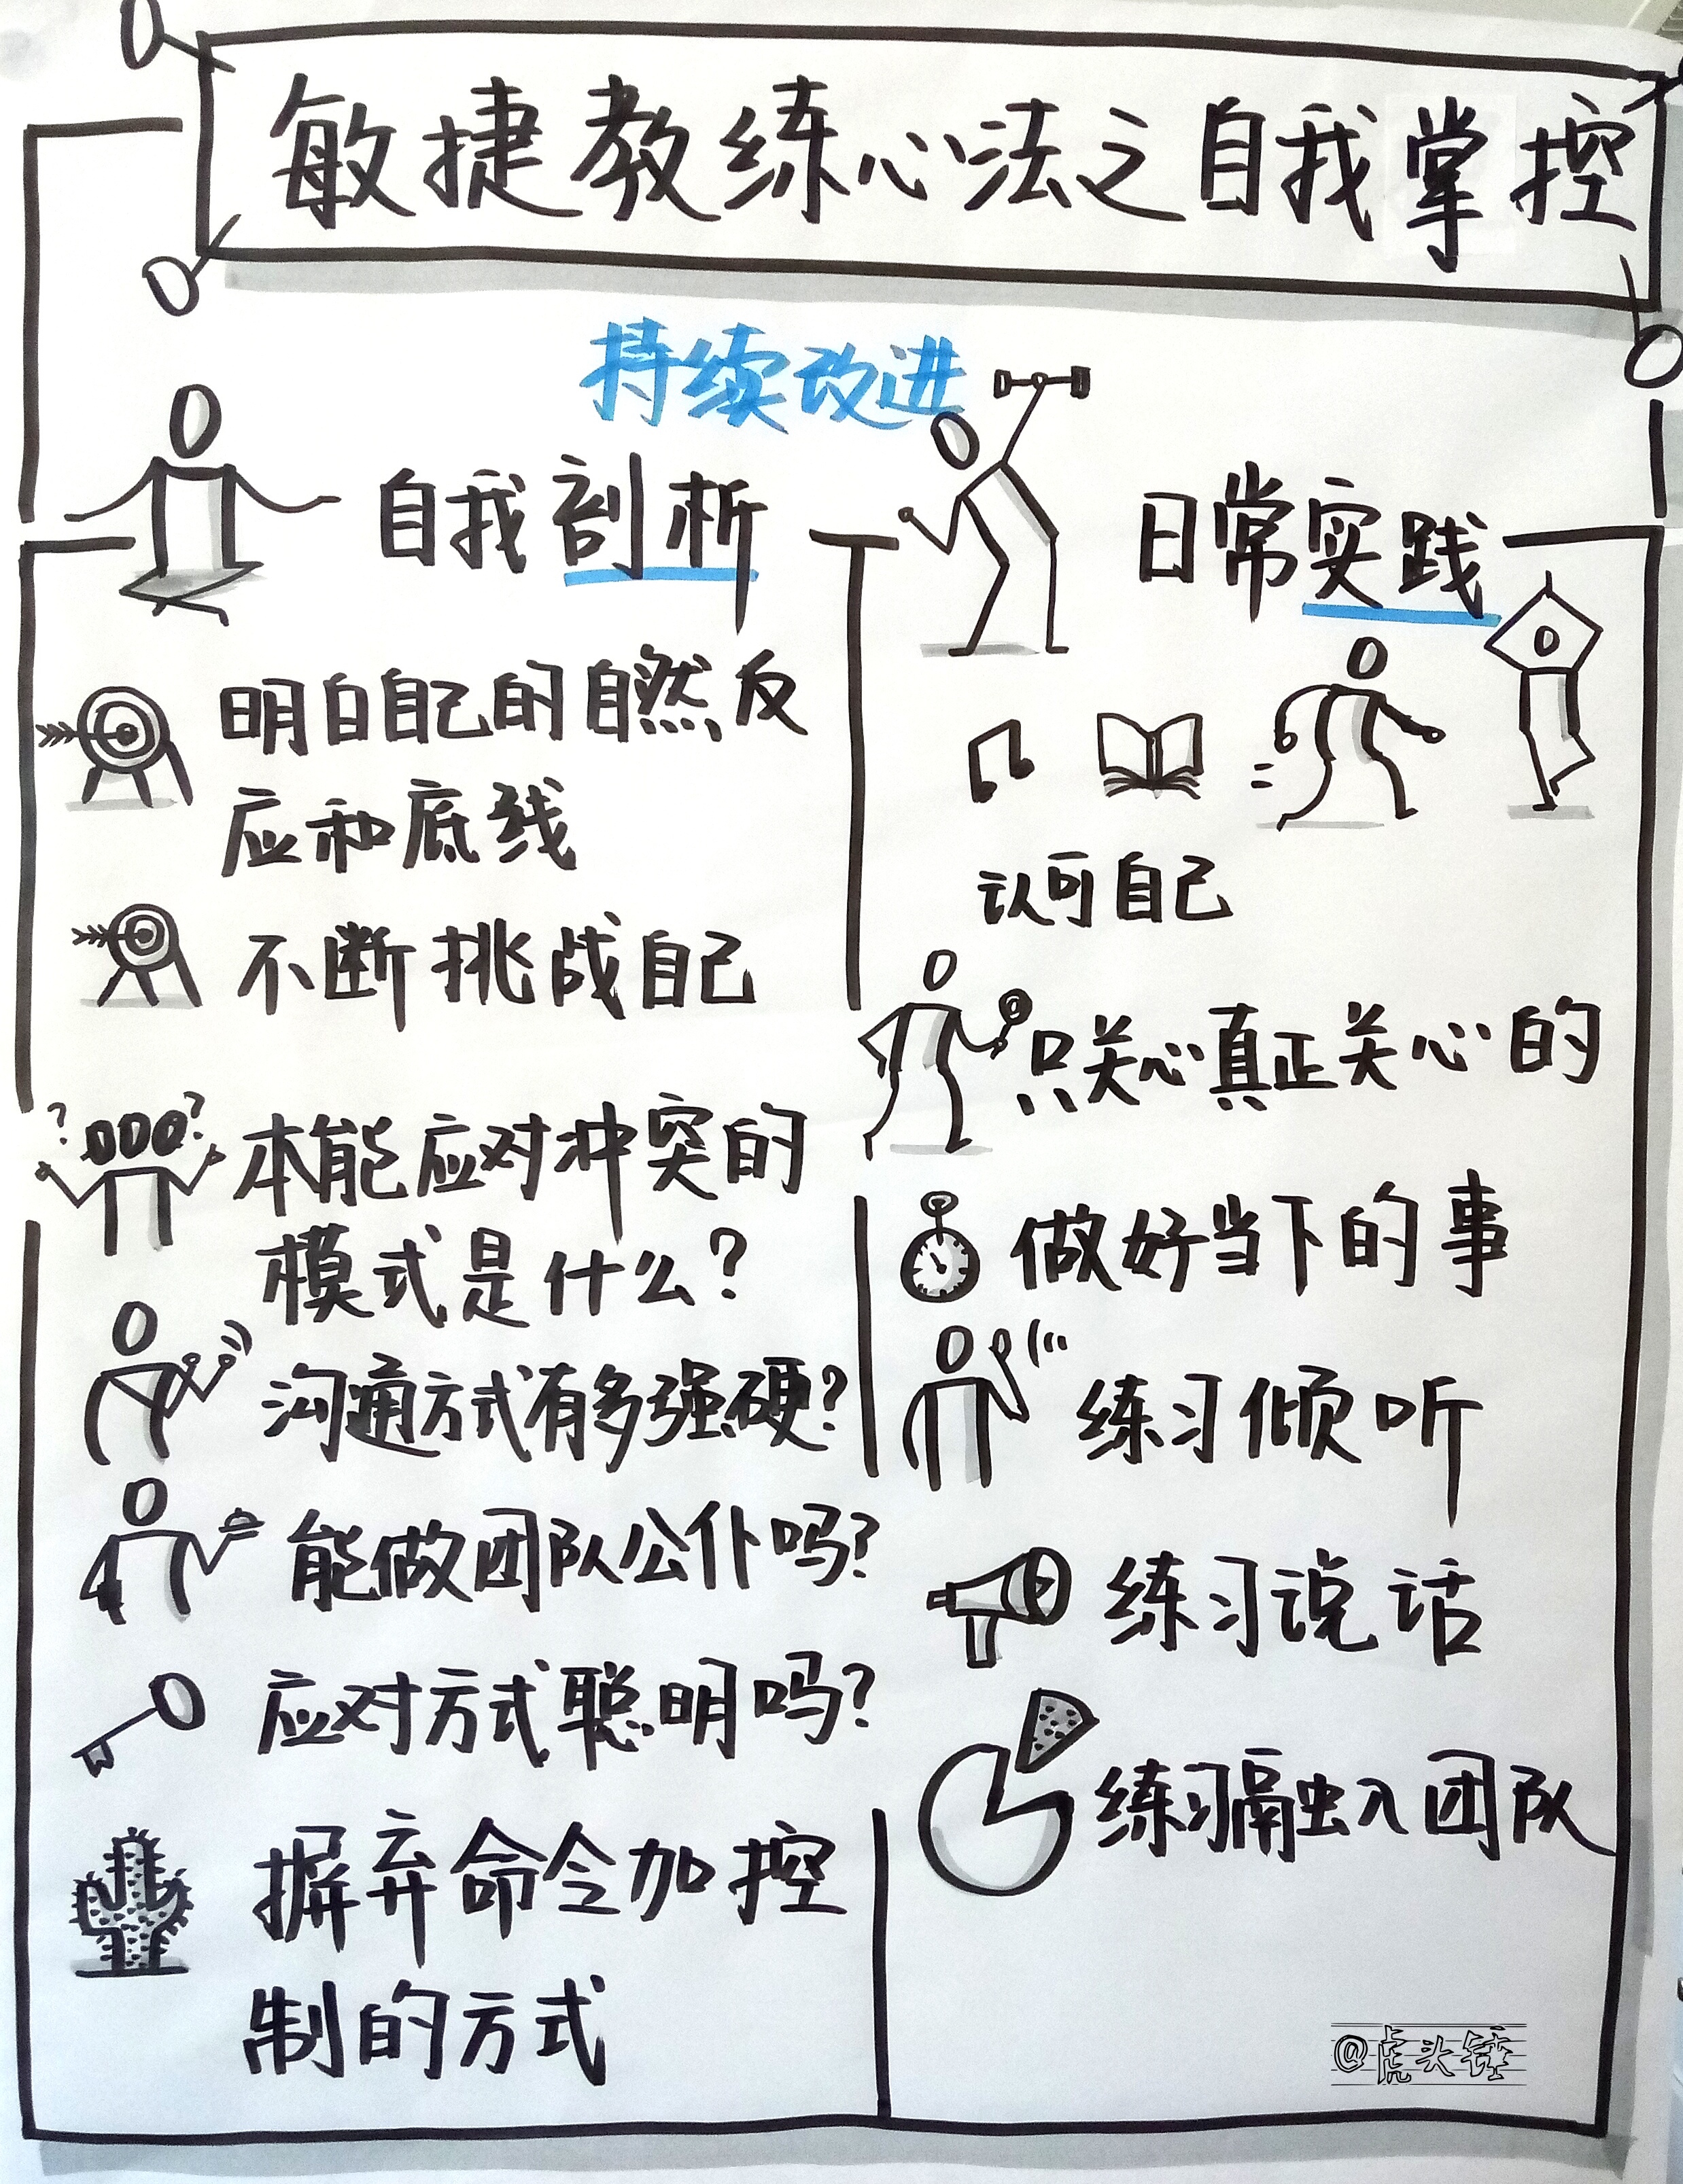 敏捷教练心法之自我掌控
持续改进
自我剖析
明白自己的自然反
应和底线
不断挑战自己
本能应对冲突的
模式是什么?
沟通方式有多强硬?
能做团队公仆吗?
应对方式聪明吗?
摒弃命令加控
制的方式
日常实践
认可自己
只关心真正关心的
做好当下的事
练习倾听
练习说话
练习融入团队
@虎头锤